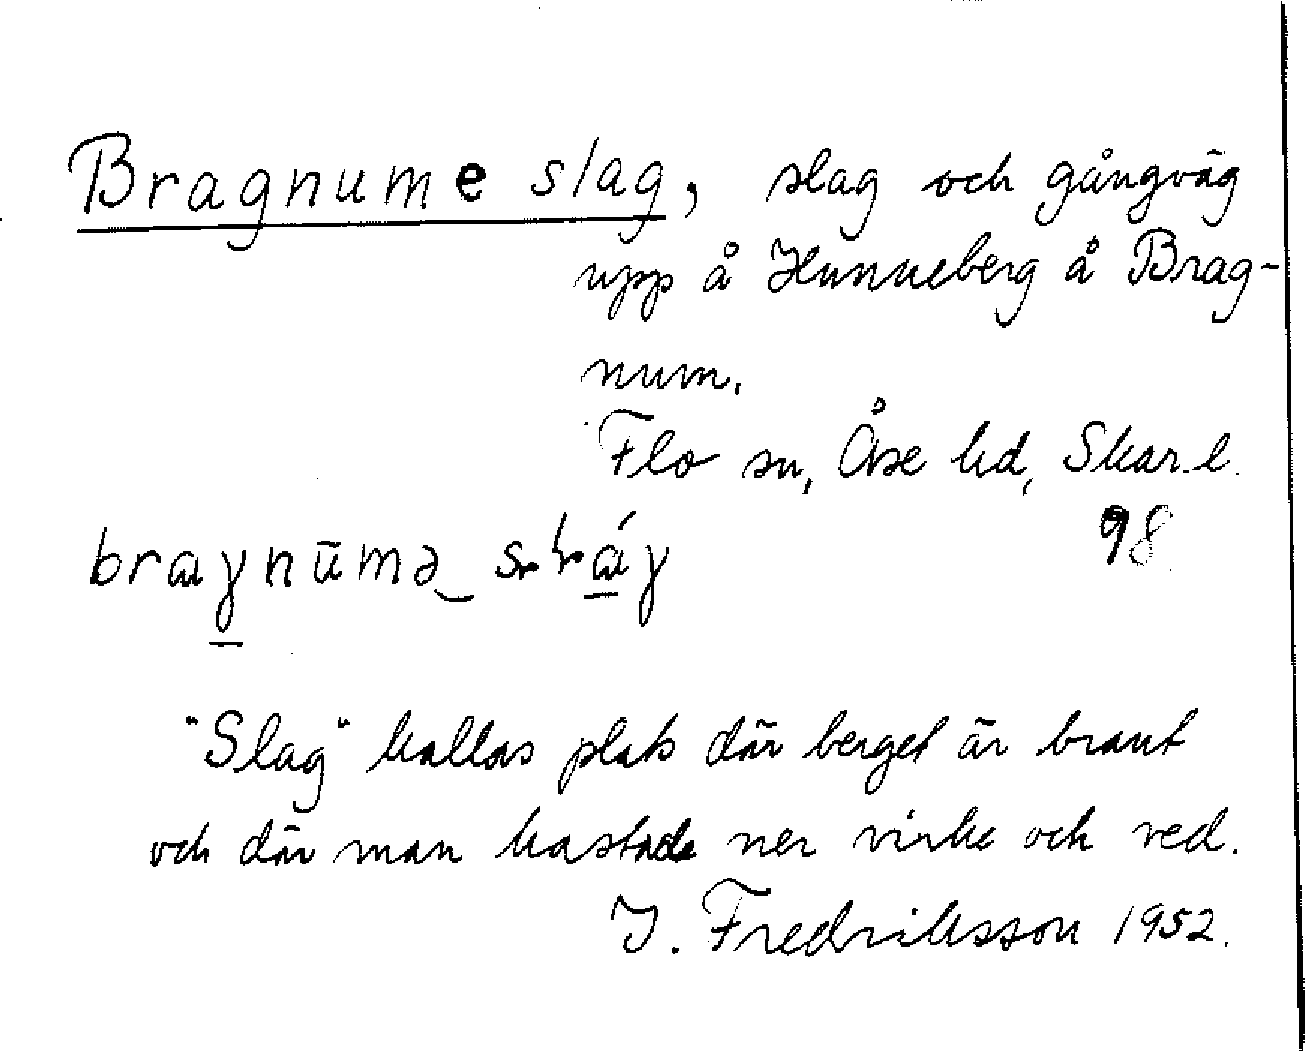 Bragnume slag, slag och gångväg
upp å Hunneberg å Brag-
num.
Flo sn, Åse hd, Skar. l.
98
"Slag" kallas plats där berget är brant
och där man kastade ner virke och ved.
J. Fredriksson 1952.